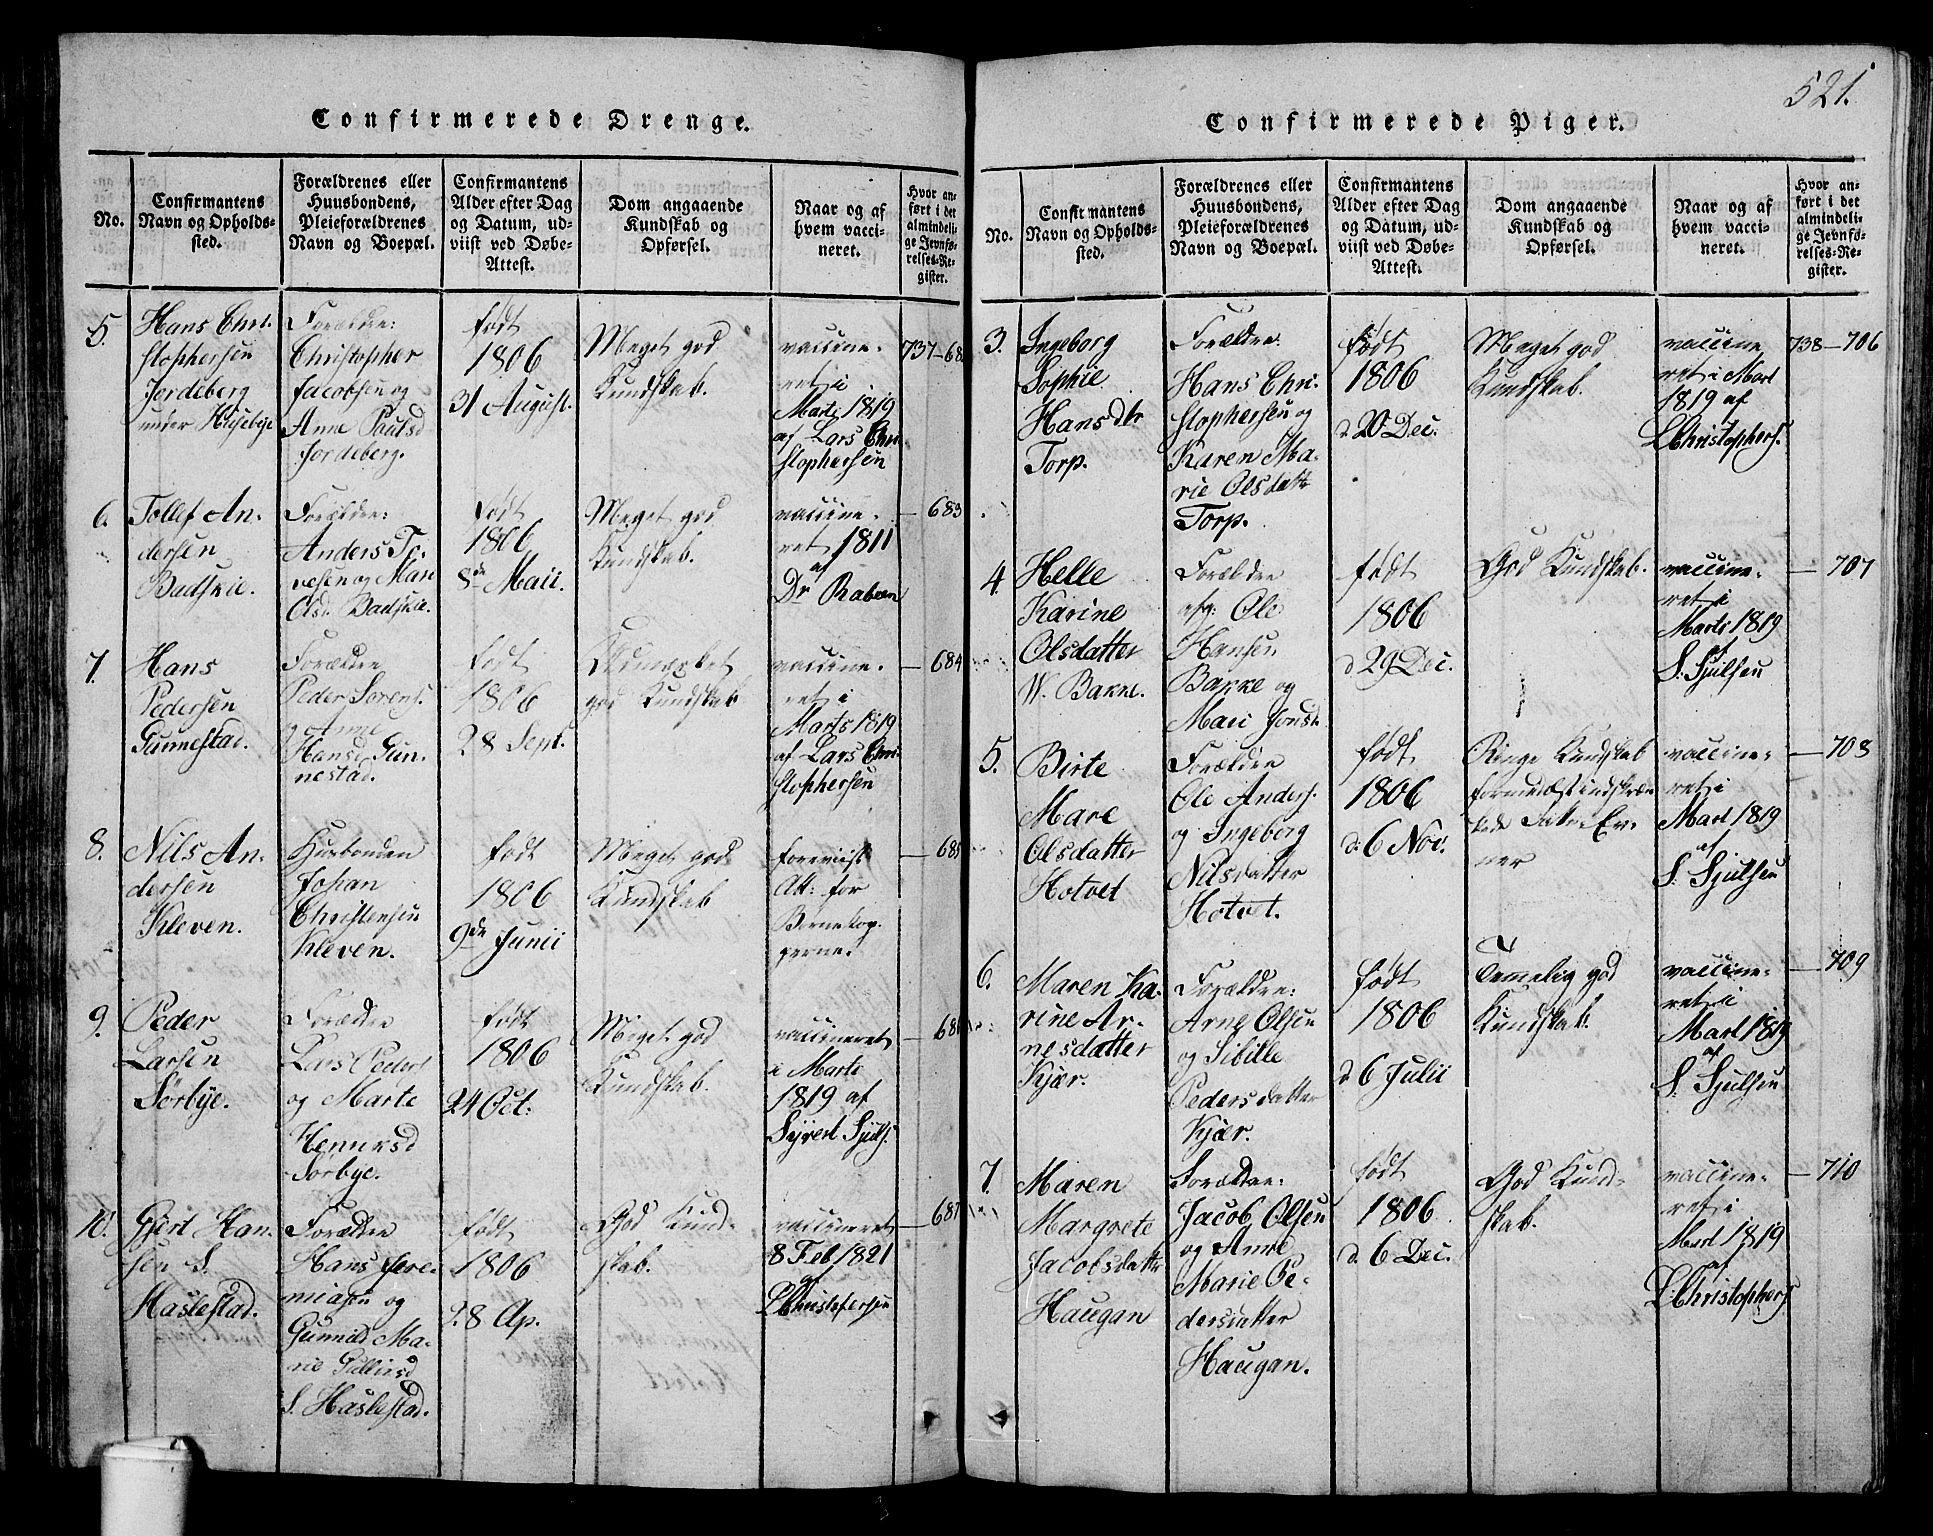 521.
Confirmerede Drenge.
No.
Confirmantens
Navn og Opholds-
sted.
Forældrenes eller
Huusbondens,
Pleieforældrenes
Navn og Boepæl.
Confirmantens
Alder efter Dag
og Datum, ud-
viist ved Døbe-
Attest.
Dom angaaende
Kundskab og
Opførsel.
Naar og af
hvem vacci-
neret.
Hvor an-
ført i det
almindeli-
ge Jevnfø-
relses-Re-
gister.
5.
Hans Chri-
stophersen
Jordeberg
under Husebye
Forældre:
Christopher
Jacobsen og
Anne Poulsd
Jordeberg.
født
1806
31 August.
Meget god
Kundskab.
vaccine-
ret i
Marti 1819
af Lars Chri-
stophersen
737-68
6.
Tollef An-
dersen
Badskie.
Forældre:
Anders To-
vesen og Mari
Olsd. Badskie.
født
1806
8de Maii.
Meget god
Kundskab.
vaccine-
ret 1811
af
Dr Raboen
- 683
7.
Hans
Pedersen
Gunnestad.
Forældre
Peder Sörens.
og Anne
Hansd Gun-
nestad.
født
1806
28 Sept.
Udmærket
god Kundskab
vaccine-
ret i
Marts 1819
af Lars Chri-
stophersen
- 684
8.
Nils An-
dersen
Kleven.
Husbonden
Johan
Christensen
Kleven.
født
1806
9de Junii
Meget god
Kundskab
foreviist
Att: for
Bornekop
perne.
- 685
9.
Peder
Larsen
Sörbye.
Forældre
Lars Peders
og Marte
Henriksd
Sörbye.
født
1806
24 Oct:
Meget god
Kundskab.
vaccineret
i Marti
1819 af
Syvert Sjuls.
- 686
10.
Gjert Han-
sen S.
Haslestad.
Forældre
Hans Jere-
miasen og
Gunnild Ma-
rie Gullixsd
S. Haslestad.
født
1806
28 Ap.
God Kund-
skab.
vaccineret
8 Feb 1821
af
L Christofersen
- 687
Confirmerede Piger.
No.
Confirmantens
Navn og Opholds-
sted.
Forældrenes eller
Huusbondens,
Pleieforældrenes
Navn og Boepæl.
Confirmantens
Alder efter Dag
og Datum, ud-
viist ved Døbe-
Attest.
Dom angaaende
Kundskab og
Opførsel.
Naar og af
hvem vacci-
neret.
Hvor an-
ført i det
almindeli-
ge Jevnfø-
relses-Re-
gister.
3.
Ingeborg
Sophie
Hansdtr
Torp.
Forældre
Hans Chri-
stophersen og
Karen Ma-
rie Olsdattr
Torp.
født
1806
d 20 Dec.
Meget god
Kundskab.
vaccine
ret i Mart
1819 af
L Christophers.
738-706
4.
Helle
Karine
Olsdatter
W. Bakke.
Forældre
afg: Ole
Hansen
Bakke og
Mari Jonsd.
født
1806
d 29 Dec.
God Kundskab.
vaccine-
ret i
Marts 1819
af
S. Sjulsen
- 707
5.
Birte
Mare
Olsdatter
Hotvet
Forældre
Ole Anders.
og Ingeborg
Nilsdatter
Hotvet.
født
1806
d: 6 Nov.
Ringe Kundskab
formedelst indskræn
kede Siæle-Ev-
ner
vaccine-
ret i
Mart 1819
af
S. Sjulsen
- 708
6.
Maren Ka-
rine Ar-
nesdatter
Kjær.
Forældre:
Arne Olsen
og Sibille
Pedersdatter
Kjær.
født
1806
d 6 Julii
Temmelig god
Kundskab.
vaccine-
ret i
Mart 1819
af
S. Sjulsen
- 709
7.
Maren
Margrete
Jacobsdattr
Haugan
Forældre:
Jacob Olsen
og Anne
Marie Pe-
dersdatter
Haugan.
født
1806
d. 6 Dec.
God Kund-
skab.
vaccine-
ret i
Mart 1819
af
L: Christophers
- 710